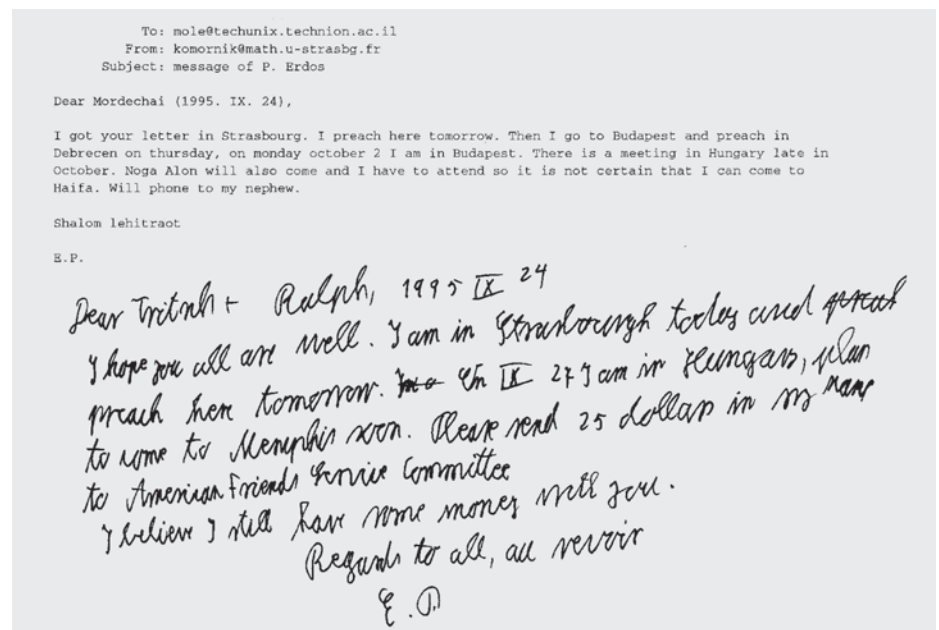 To: mole@techunix.technion.ac.il
From: komornik@math.u-strasbg.fr
Subject: message of P. Erdos
Dear Mordechai (1995. IX. 24),
I got your letter in Strasbourg. I preach here tomorrow. Then I go to Budapest and preach in
Debrecen on thursday, on monday october 2 I am in Budapest. There is a meeting in Hungary late in
October. Noga Alon will also come and I have to attend so it is not certain that I can come to
Haifa. Will phone to my nephew.
Shalom lehitraot
E.P.
Dear + Ralph, 1995 IX 24
I hope you all are well. I am in Strasbourgh today and
preach here tomorrow. On IX 27 I am in Hungary, plan
to come to Memphis soon. Please send 25 dollars in my name
to American Friends Service Committee
I believe I still have some money with you.
Regards to all, au revoir
E.P